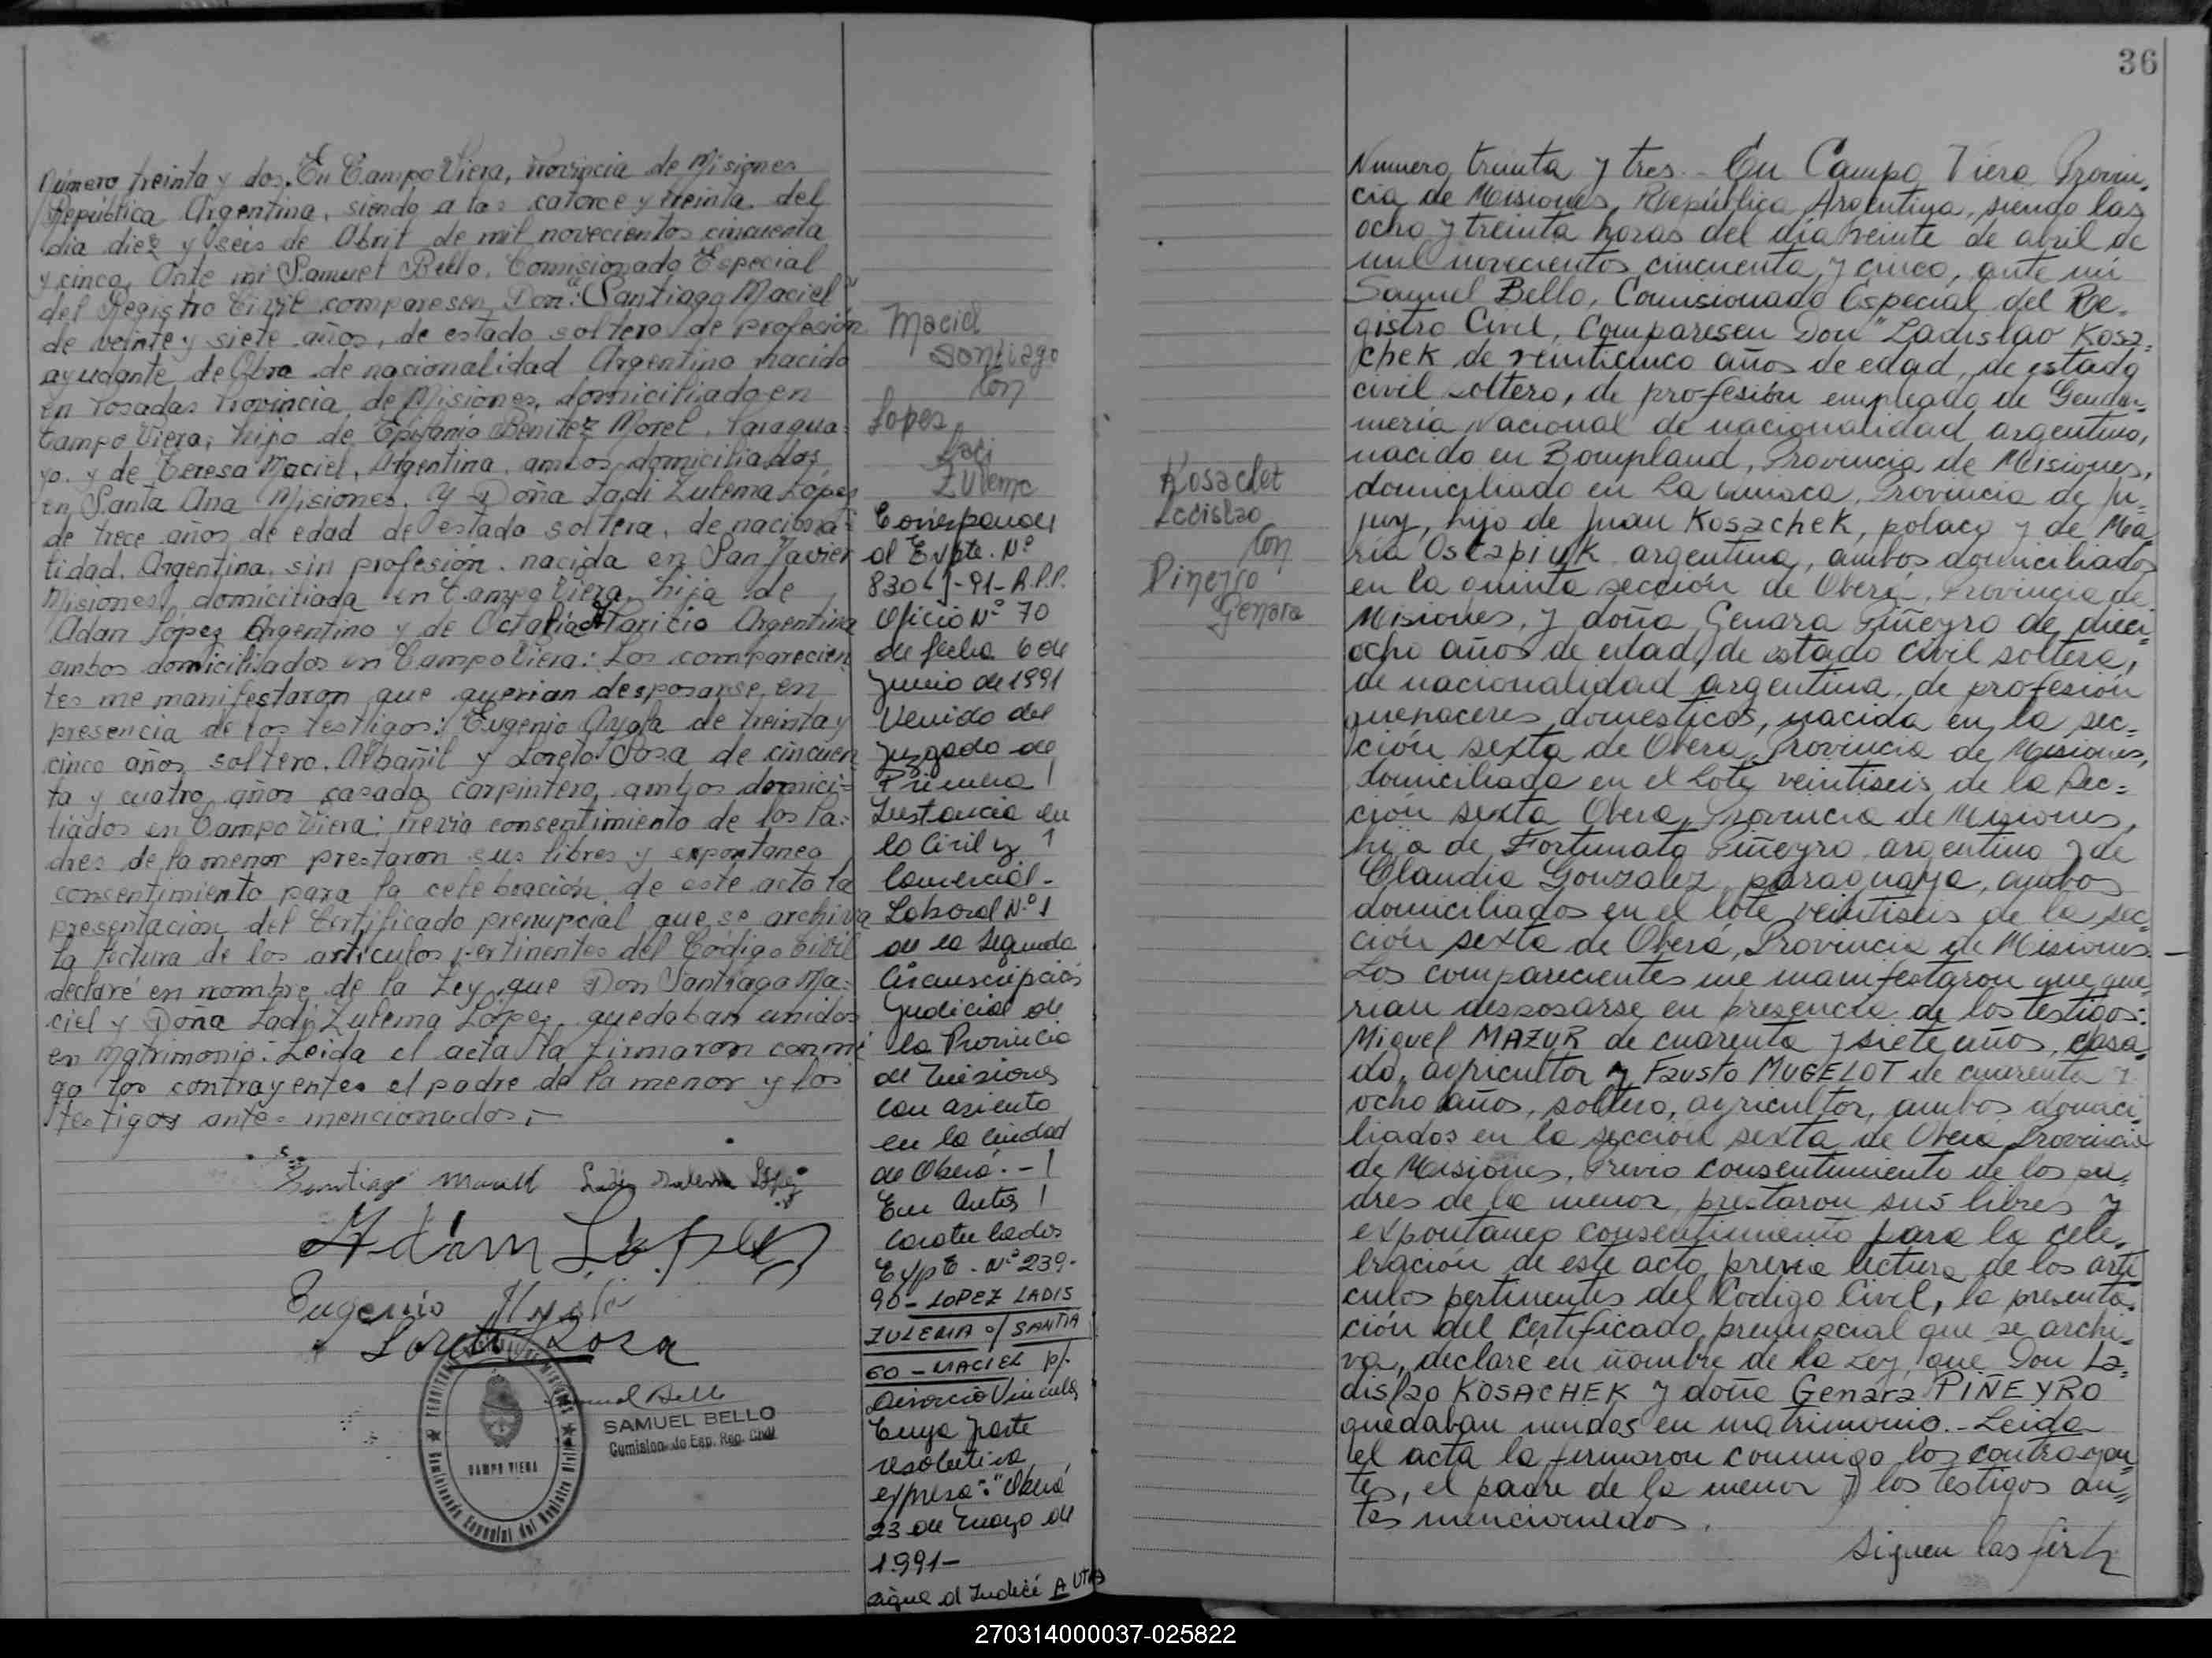 Número treinta y dos. En Campo Viera, Provincia de Misiones
República Argentina, siendo a las catorce y treinta del
dia diez y seis de Abril de mil novecientos cincuenta
y cinco, Ante mi Samuel Bello, Comisionado Especial
del Registro Civil comparesen Don: "Santiago Maciel"
de veinte y siete años, de estado soltero de profesión
ayudante de Obra de nacionalidad Argentino nacido
en Posadas Provincia de Misiones, domiciliado en
Campo Viera, hijo de Epifanio Benitez Morel, Paragua=
yo. y de Teresa Maciel, Argentina, ambos domiciliados
en Santa Ana Misiones, y Doña Ladi Zulema Lopes
de trece años de edad de estado soltera, de naciona=
lidad Argentina, sin profesión, nacida en San Javier
Misiones, domiciliada en Campo Viera, hija de
Adan López Argentino y de Octalia Aparicio Argentina
ambos domiciliados en Campo Viera: Los comparecien
tes me manifestaron que querian desposarse en
presencia de los testigos: Eugenio Ayala de treinta y
cinco años soltero, Albañil y Loreto Sosa de cincuen
ta y cuatro años casado carpintero, ambos domici=
liados en Campo Viera: Previo consentimiento de los Pa=
dres de la menor prestaron sus libres y expontaneo
consentimiento para la celebración de este acto la
presentación del Certificado prenupcial que se archiva
La lectura de los articulos pertinentes del Código Civil
declaré en nombre de la Ley que Don Santiago Ma=
ciel y Doña Ladi Zulema Lópes quedaban unidos
en matrimonio: Leida el acta la firmaron conmi
go los contrayentes el padre de la menor y los
testigos antes mencionados.-
Santiago Maciel Ladis Zulema López
Adam López
Eugenio Ayala
Loreto Sosa
Samuel Bello
SAMUEL BELLO
Comisionado Esp. Reg. Civil
CAMPO VIERA
Maciel
Santiago
Con
Lopes
Ladi
Zulema
Corresponde
al Expte. Nº
830 -91-R.P.P.
Oficio Nº 70
de fecha 6 de
Junio de 1991
Venido del
Juzgado de
Primera
Instancia en
lo Civil y
Comercial-
Laboral Nº 1
de la Segunda
Circunscripción
Judicial de
la Provincia
de Misiones
con asiento
en la Ciudad
de Oberá.-
En Autos
Caratulados
Expte. Nº 239-
90-LOPEZ LADIS
ZULEMA c/ SANTIA
GO-MACIEL p/.
Divorcio Vincular
Cuya parte
resolutiva
expresa: "Oberá
23 de Mayo de
1.991-
sigue al Indice A UTRA
36
Kosachek
Ladislao
Con
Pineyro
Genara
Numero treinta y tres.- En Campo Viera Provin=
cia de Misiones, República Argentina, siendo las
ocho y treinta horas del dia veinte de abril de
mil novecientos cincuenta y cinco, ante mi
Samuel Bello, Comisionado Especial del Re=
gistro Civil, Comparesen Don "Ladislao Kosa=
chek de veinticinco años de edad, de estado
civil soltero, de profesión empleado de Gendar=
meria Nacional de nacionalidad argentino,
nacido en Bompland, Provincia de Misiones,
domiciliado en La Quiaca, Provincia de Ju=
juy, hijo de Juan Kosachek, polaco y de Ma
ría Ostapiuk argentina, ambos domiciliados
en la quinta sección de Oberá, Provincia de
Misiones, y doña Genara Piñeyro de dieci=
ocho años de edad, de estado civil soltera,
de nacionalidad argentina, de profesión
quehaceres domesticos, nacida en la sec=
ción sexta de Oberá, Provincia de Misiones,
domiciliada en el Lote veintiseis de la Sec=
ción sexta Oberá, Provincia de Misiones,
hija de Fortunato Piñeyro argentino y de
Claudia Gonzalez paraguaya, ambos
domiciliados en el lote veintiseis de la sec=
ción sexta de Oberá, Provincia de Misiones.
Los comparecientes me manifestaron que que=
rian desposarse en presencia de los testigos:
Miguel MAZUR de cuarenta y siete años, casa=
do, agricultor y Fausto MUGELOT de cuarenta y
ocho años, soltero, agricultor, ambos domici
liados en la sección sexta de Oberá Provincia
de Misiones, Previo consentimiento de los pa=
dres de la menor, prestaron sus libres y
expontaneo consentimiento para la cele=
bración de este acto previa lectura de los arti
culos pertinentes del Codigo Civil, la presenta=
ción del certificado prenupcial que se archi=
va, declaré en nombre de la Ley que Don La=
dislao KOSACHEK y doña Genara PIÑEYRO
quedaban unidos en matrimonio.- Leida
el acta la firmaron conmigo los contrayen=
tes, el padre de la menor y los testigos an=
tes mencionados.
Siguen las fir
270314000037-025822